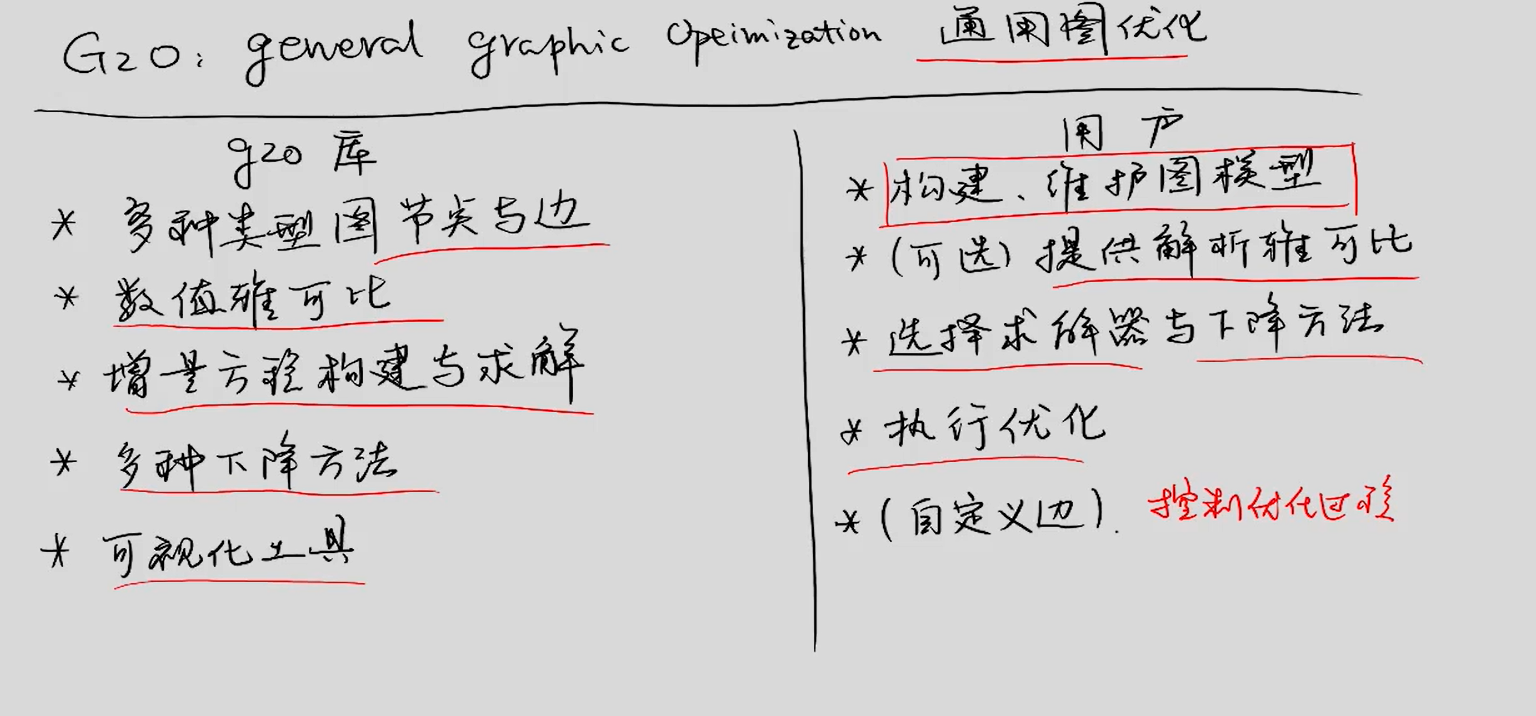 G2O: general graphic Opeimization 通用图优化
g2o 库
* 多种类型图节点与边
* 数值雅可比
* 增量方程构建与求解
* 多种下降方法
* 可视化工具
用户
* 构建、维护图模型
* (可选) 提供解析雅可比
* 选择求解器与下降方法
* 执行优化
* (自定义边). 控制优化过程